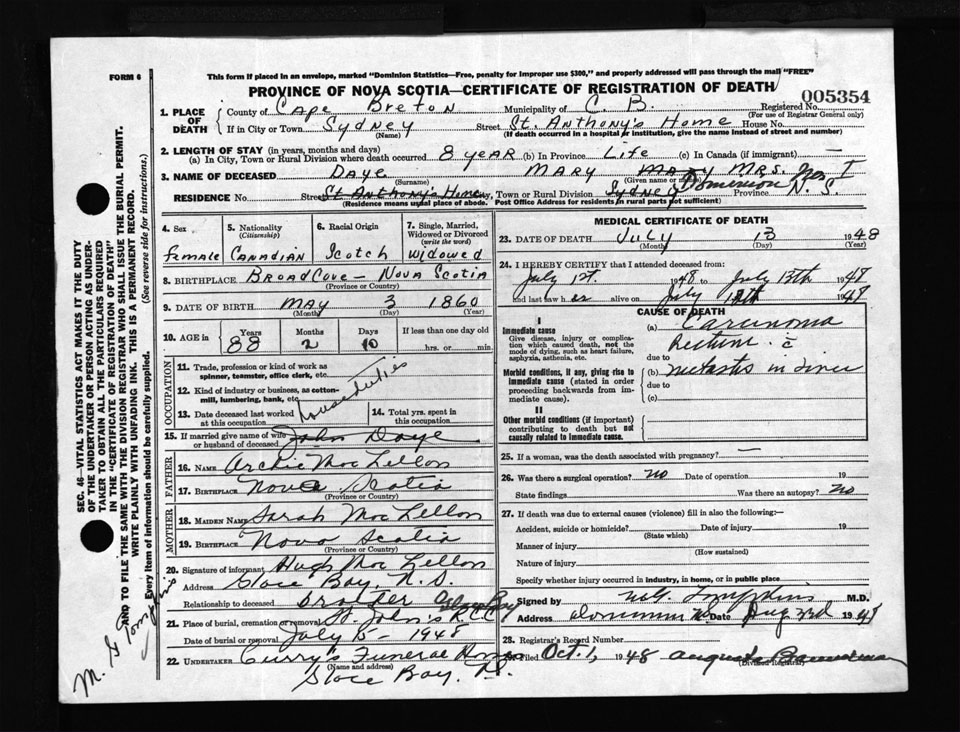 FORM 6
This form if placed in an envelope, marked "Dominion Statistics—Free, penalty for improper use $300," and properly addressed will pass through the mail "FREE"
PROVINCE OF NOVA SCOTIA—CERTIFICATE OF REGISTRATION OF DEATH
005354
1. PLACE OF DEATH County of Cape Breton Municipality of C. B. Registered No.
(For use of Registrar General only)
If in City or Town Sydney Street St. Anthony's Home House No.
(Name) (If death occurred in a hospital or institution, give the name instead of street and number)
2. LENGTH OF STAY (in years, months and days)
(a) In City, Town or Rural Division where death occurred 8 year (b) in Province Life (c) in Canada (if immigrant) —
3. NAME OF DECEASED Daye Mary Mary Mrs.
(Surname) (Given name or names)
RESIDENCE No. Street St Anthony's Home City, Town or Rural Division Sydney Dominion Province N. S.
(Residence means usual place of abode. Post Office Address for residents in rural parts not sufficient)
4. Sex
Female
5. Nationality
(Citizenship)
Canadian
6. Racial Origin
Scotch
7. Single, Married, Widowed or Divorced
(write the word)
Widowed
8. BIRTHPLACE Broad Cove – Nova Scotia
(Province or Country)
9. DATE OF BIRTH May 3 1860
(Month) (Day) (Year)
10. AGE in Years Months Days If less than one day old
88 2 10 hrs. or min.
OCCUPATION
11. Trade, profession or kind of work as spinner, teamster, office clerk, etc.
12. Kind of industry or business, as cotton-mill, lumbering, bank, etc.
House duties
13. Date deceased last worked at this occupation
14. Total yrs. spent in this occupation
15. If married give name of wife or husband of deceased John Daye
FATHER
16. NAME Archie Mac Lellan
17. BIRTHPLACE Nova Scotia
(Province or Country)
MOTHER
18. MAIDEN NAME Sarah Mac Lellan
19. BIRTHPLACE Nova Scotia
(Province or Country)
20. Signature of informant Hugh Mac Lellan
Address Glace Bay, N. S.
Relationship to deceased brother
21. Place of burial, cremation or removal St. John's R.C.C. Glace Bay
Date of burial or removal July 15 - 1948
22. UNDERTAKER Curry's Funeral Home
(Name and address)
Glace Bay, N.S.
MEDICAL CERTIFICATE OF DEATH
23. DATE OF DEATH July 13 1948
(Month) (Day) (Year)
24. I HEREBY CERTIFY that I attended deceased from:
July 1st. 1948 to July 13th 1948
and last saw her alive on July 12th 1948
CAUSE OF DEATH
I
Immediate cause
Give disease, injury or complication which caused death, not the mode of dying, such as heart failure, asphyxia, asthenia, etc.
(a) Carcinoma
Rectum c̄
due to
Morbid conditions, if any, giving rise to immediate cause (stated in order proceeding backwards from immediate cause).
(b) metastis in Liver
due to
(c)
II
Other morbid conditions (if important) contributing to death but not causally related to immediate cause.
25. If a woman, was the death associated with pregnancy? —
26. Was there a surgical operation? no Date of operation 19
State findings Was there an autopsy? no
27. If death was due to external causes (violence) fill in also the following:—
Accident, suicide or homicide? Date of injury 19
(State which)
Manner of injury
(How sustained)
Nature of injury
Specify whether injury occurred in industry, in home, or in public place
Signed by M.G. Tompkins M.D.
Address Dominion N.S. Date Aug 23rd 1948
28. Registrar's Record Number
Filed Oct. 1, 1948
(Division Registrar)
SEC. 46—VITAL STATISTICS ACT MAKES IT THE DUTY
OF THE UNDERTAKER OR PERSON ACTING AS UNDER-
TAKER TO OBTAIN ALL THE PARTICULARS REQUIRED
IN THE "CERTIFICATE OF REGISTRATION OF DEATH"
AND TO FILE THE SAME WITH THE DIVISION REGISTRAR WHO SHALL ISSUE THE BURIAL PERMIT.
WRITE PLAINLY WITH UNFADING INK. THIS IS A PERMANENT RECORD.
Every item of information should be carefully supplied. (See reverse side for instructions.)
M. G Tompkins